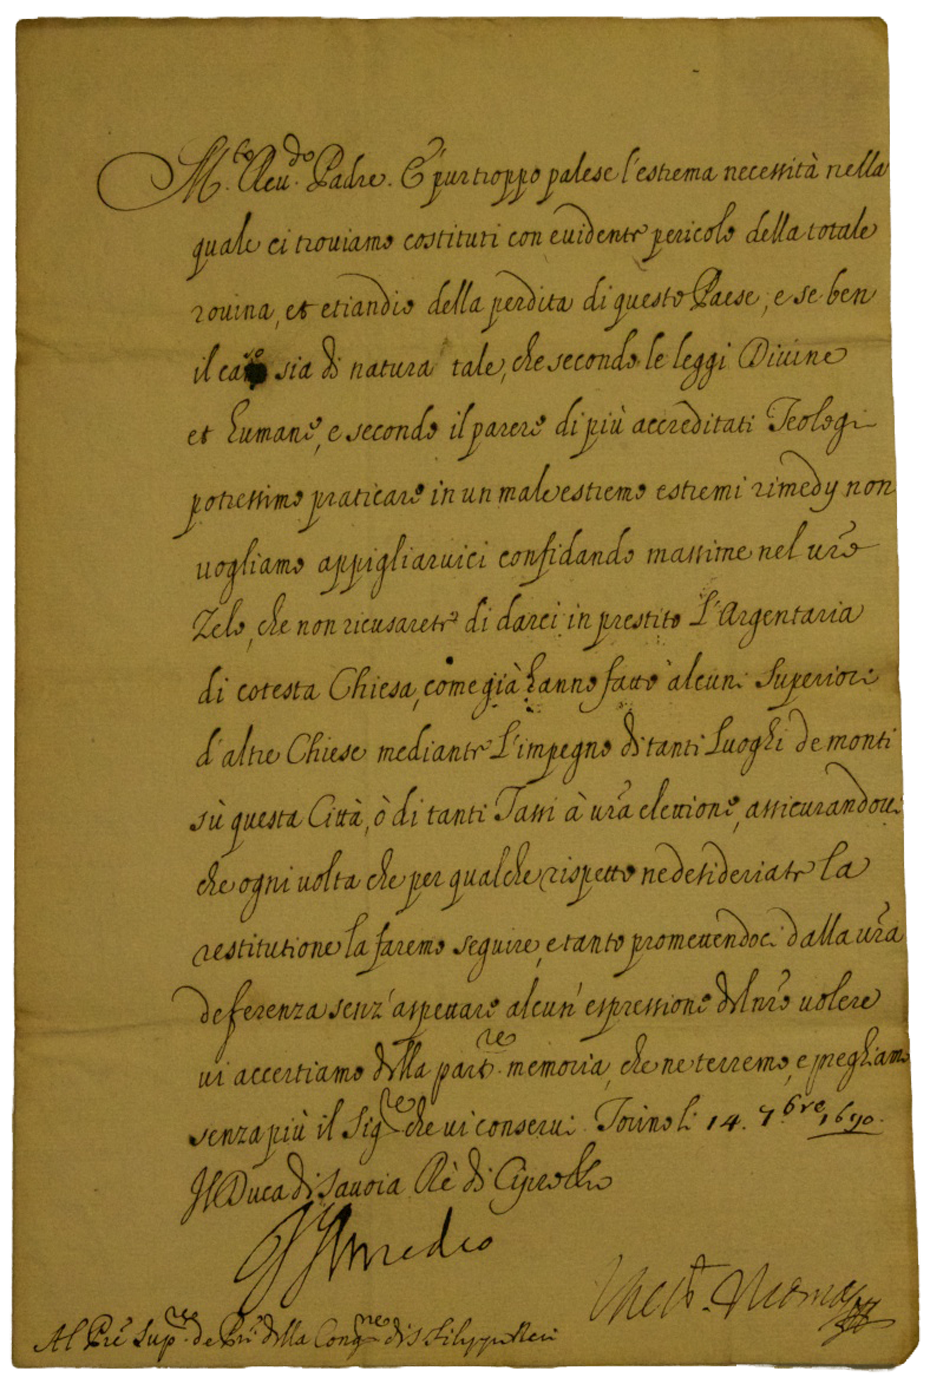 M.to Reu.do Padre. È pur troppo palese l'estrema necessità nella
quale ci trouiamo costituti con euidente pericolo della totale
rouina, et etiandio della perdita di questo Paese, e se ben
il caso sia di natura tale, che secondo le leggi Diuine
et humane, e secondo il parere di più accreditati Teologi
potressimo praticare in un male estremo estremi rimedy non
uogliamo appigliaruici confidando massime nel uro
Zelo, che non ricusarete di darci in prestito l'Argentaria
di cotesta Chiesa, come già hanno fatto alcuni Superiori
d'altre Chiese mediante l'impegno di tanti Luoghi de monti
sù questa Città, ò di tanti Tassi à ura elettione, assicurandoui
che ogni uolta che per qualche rispetto ne desideriate la
restitutione la faremo seguire, e tanto promettendoci dalla ura
deferenza senz'aspettare alcun' espressione del nro uolere
ui accertiamo della part.re memoria, che ne terremo, e preghiamo
senza più il Sig.re che ui conserui. Torino li 14. 7.bre 1690.
Il Duca di Sauoia Rè di Cipro
V Amedeo
Al Pre Sup.re de Pri della Cong.ne di S Filippo Neri